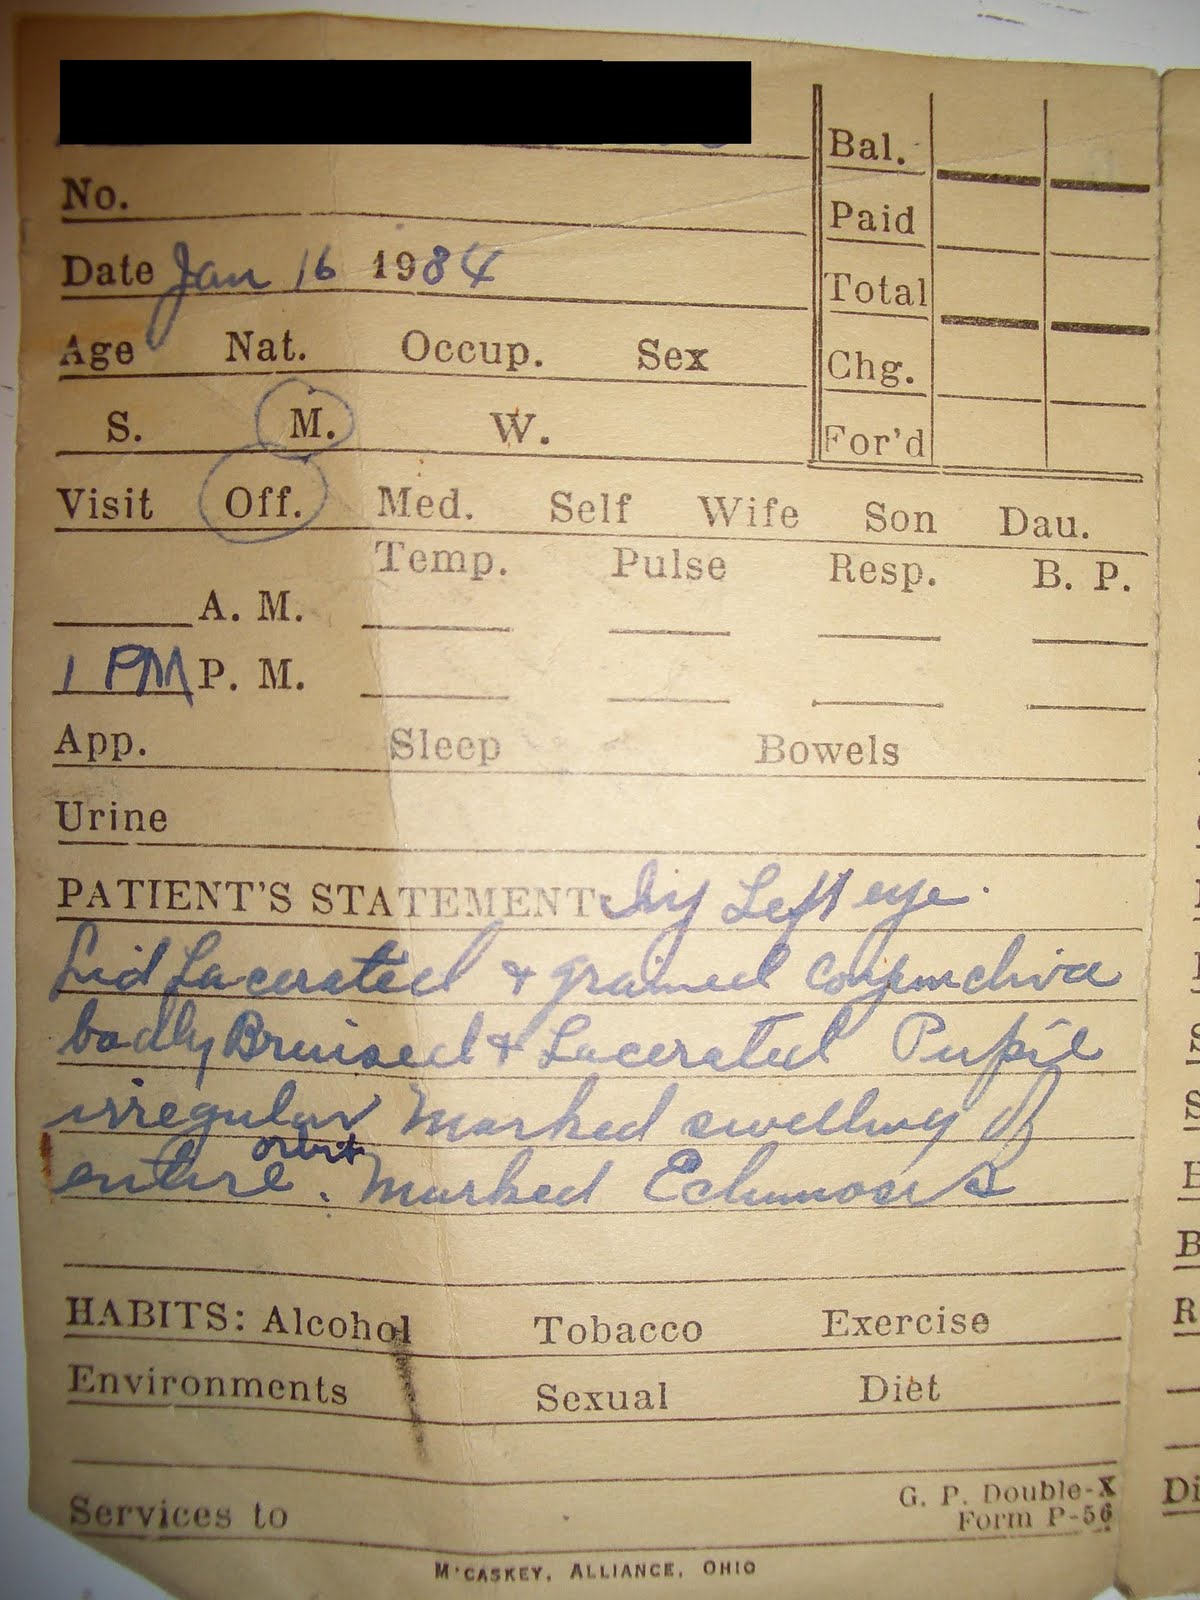 Bal.
No.
Paid
Date Jan 16 1984
Total
Age Nat. Occup. Sex
Chg.
S. M. W.
For'd
Visit Off. Med. Self Wife Son Dau.
Temp. Pulse Resp. B. P.
A. M.
1 PM P. M.
App. Sleep Bowels
Urine
PATIENT'S STATEMENT Inj Left eye.
Lid Lacerated + conjunctiva
badly Bruised + Lacerated Pupil
irregular Marked swelling of
orbit
entire. Marked
HABITS: Alcohol Tobacco Exercise
Environments Sexual Diet
G. P. Double-X
Services to Form P-56
M'CASKEY, ALLIANCE, OHIO